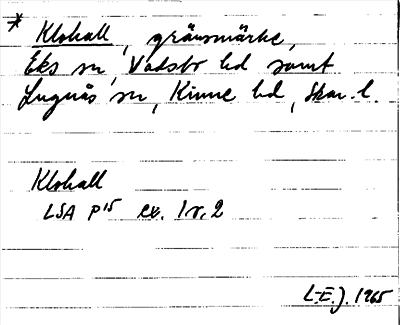 * Klohall, gränsmärke,
Eks sn, Vadsbo hd samt
Lugnås sn, Kinne hd, Skar. l.
Klohall
LSA P15 ex. 1 v. 2
L-E. J. 1965